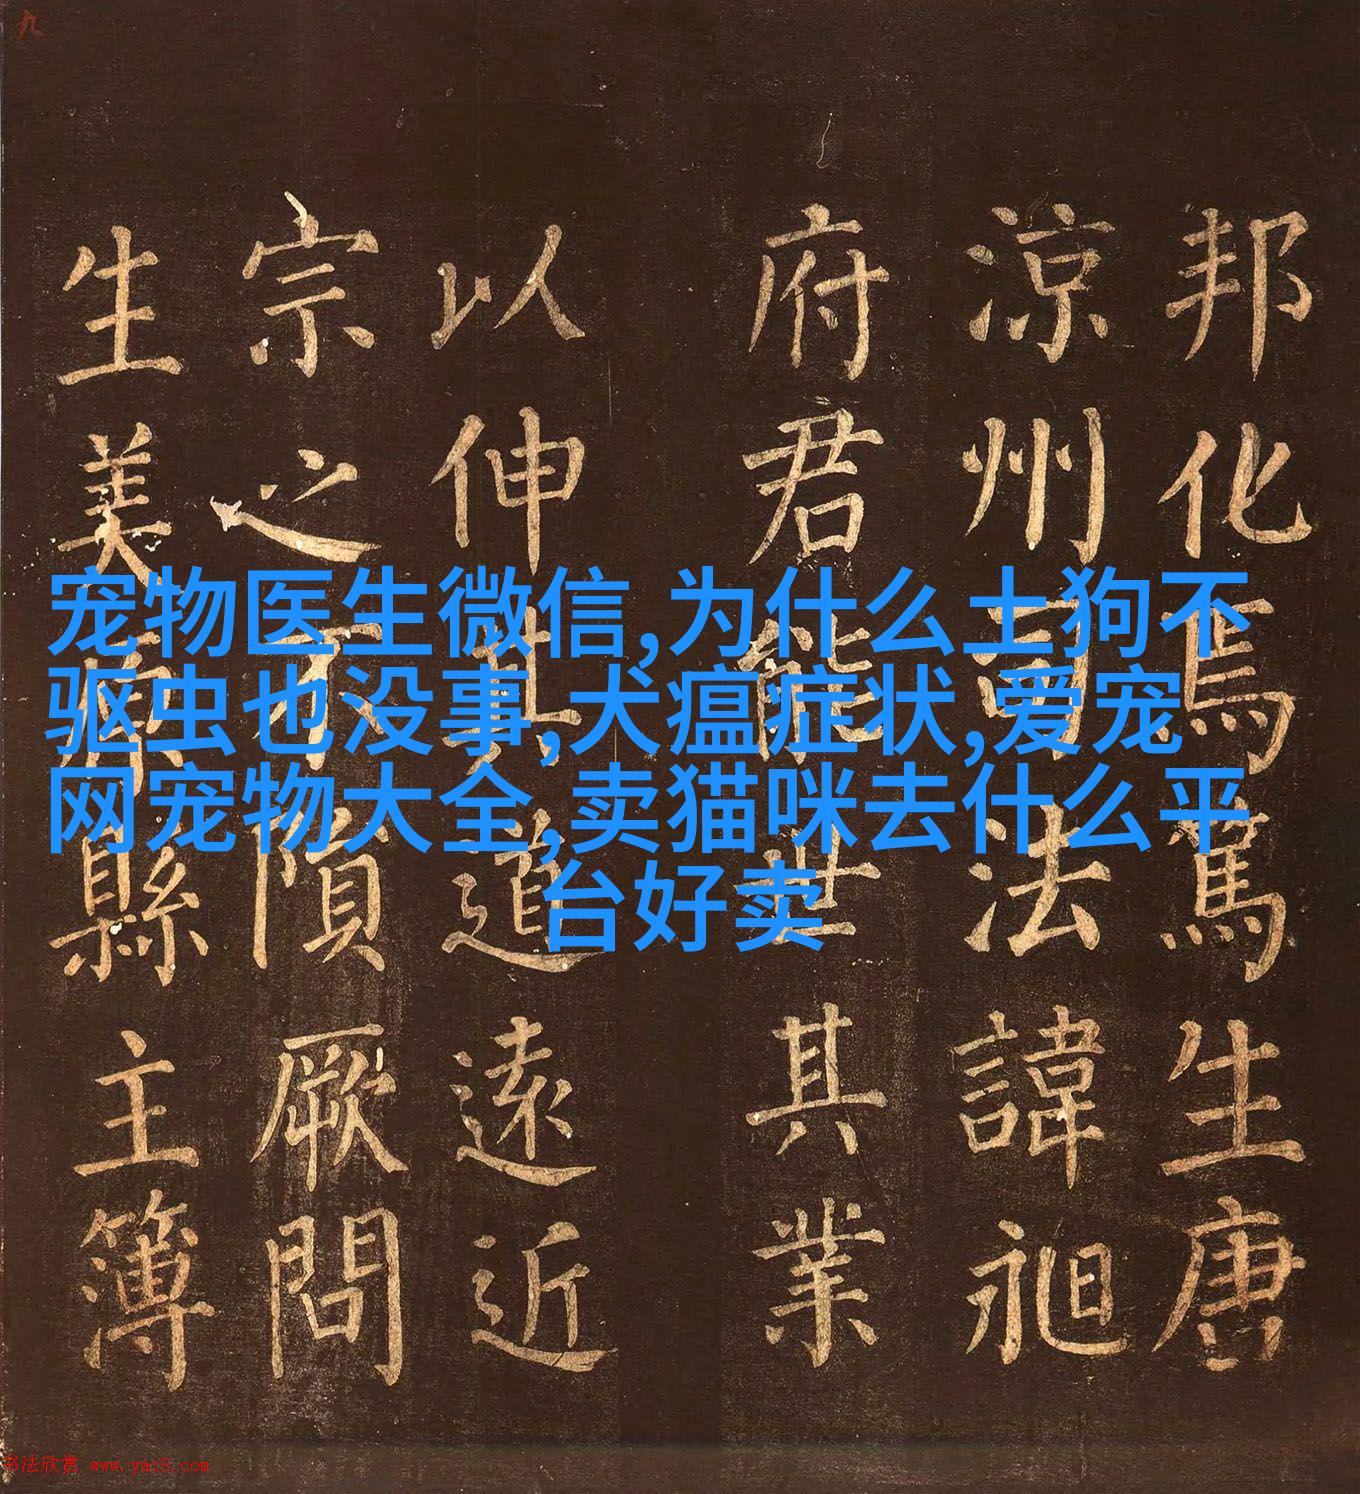 九
邦化焉篤生唐
涼州司法諱昶
府君能世其業
以伸其道遠近
宗之不隕厥問
生美原縣主簿
宠物医生微信,为什么土狗不
驱虫也没事,犬瘟症状,爱宠
网宠物大全,卖猫咪去什么平
台好卖
书法欣赏 www.yac8.com